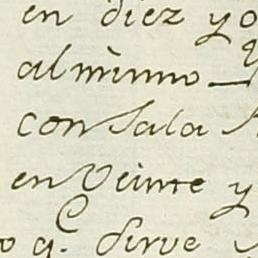 en diez y o
al mismo
con sala
en Veinte y
q.e sirve